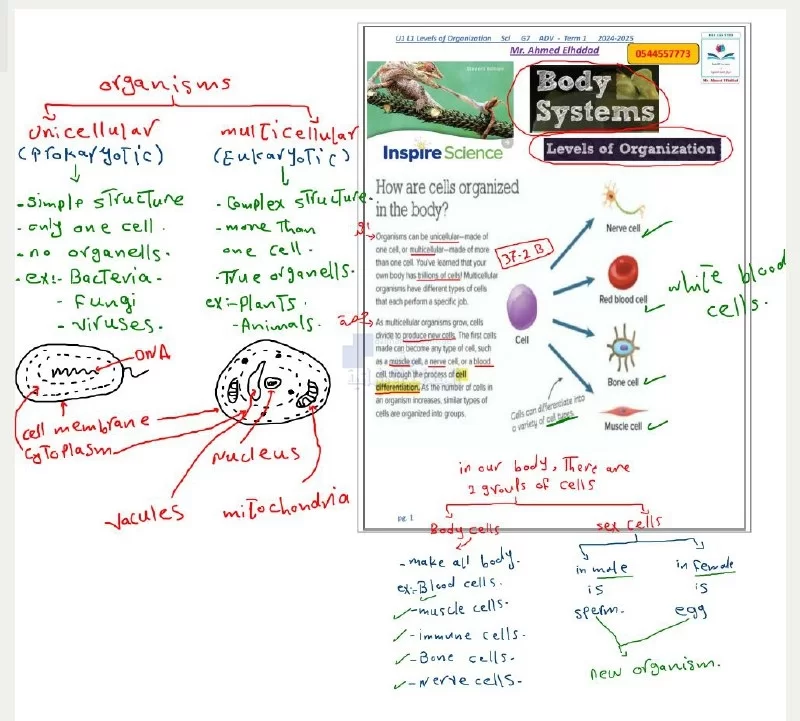 U1 L1 Levels of Organization Sci G7 ADV - Term 1 2024-2025
Mr. Ahmed Elhddad
0544557773
Mr. Ahmed Elhddad
Body
Systems
Inspire Science
Levels of Organization
How are cells organized
in the body?
Organisms can be unicellular—made of
one cell, or multicellular—made of more
than one cell. You've learned that your
own body has trillions of cells! Multicellular
organisms have different types of cells
that each perform a specific job.
As multicellular organisms grow, cells
divide to produce new cells. The first cells
made can become any type of cell, such
as a muscle cell, a nerve cell, or a blood
cell, through the process of cell
differentiation. As the number of cells in
an organism increases, similar types of
cells are organized into groups.
37.2 B
Cell
Nerve cell
Red blood cell
Bone cell
Muscle cell
Cells can differentiate into
a variety of cell types.
white blood
cells.
organisms
unicellular
(Prokaryotic)
-simple structure
-only one cell.
-no organells.
-ex:- Bacteria.
- Fungi
- viruses.
multicellular
(Eukaryotic)
-complex structure.
-more than
one cell.
-True organells.
ex:-Plants.
-Animals.
DNA
cell membrane
cytoplasm
Nucleus
vacules
mitochondria
in our body, There are
2 grouls of cells
Body cells
-make all body.
ex:-Blood cells.
-muscle cells.
-immune cells.
-Bone cells.
-Nerve cells.
sex cells
in male
is
sperm.
in female
is
egg
new organism.